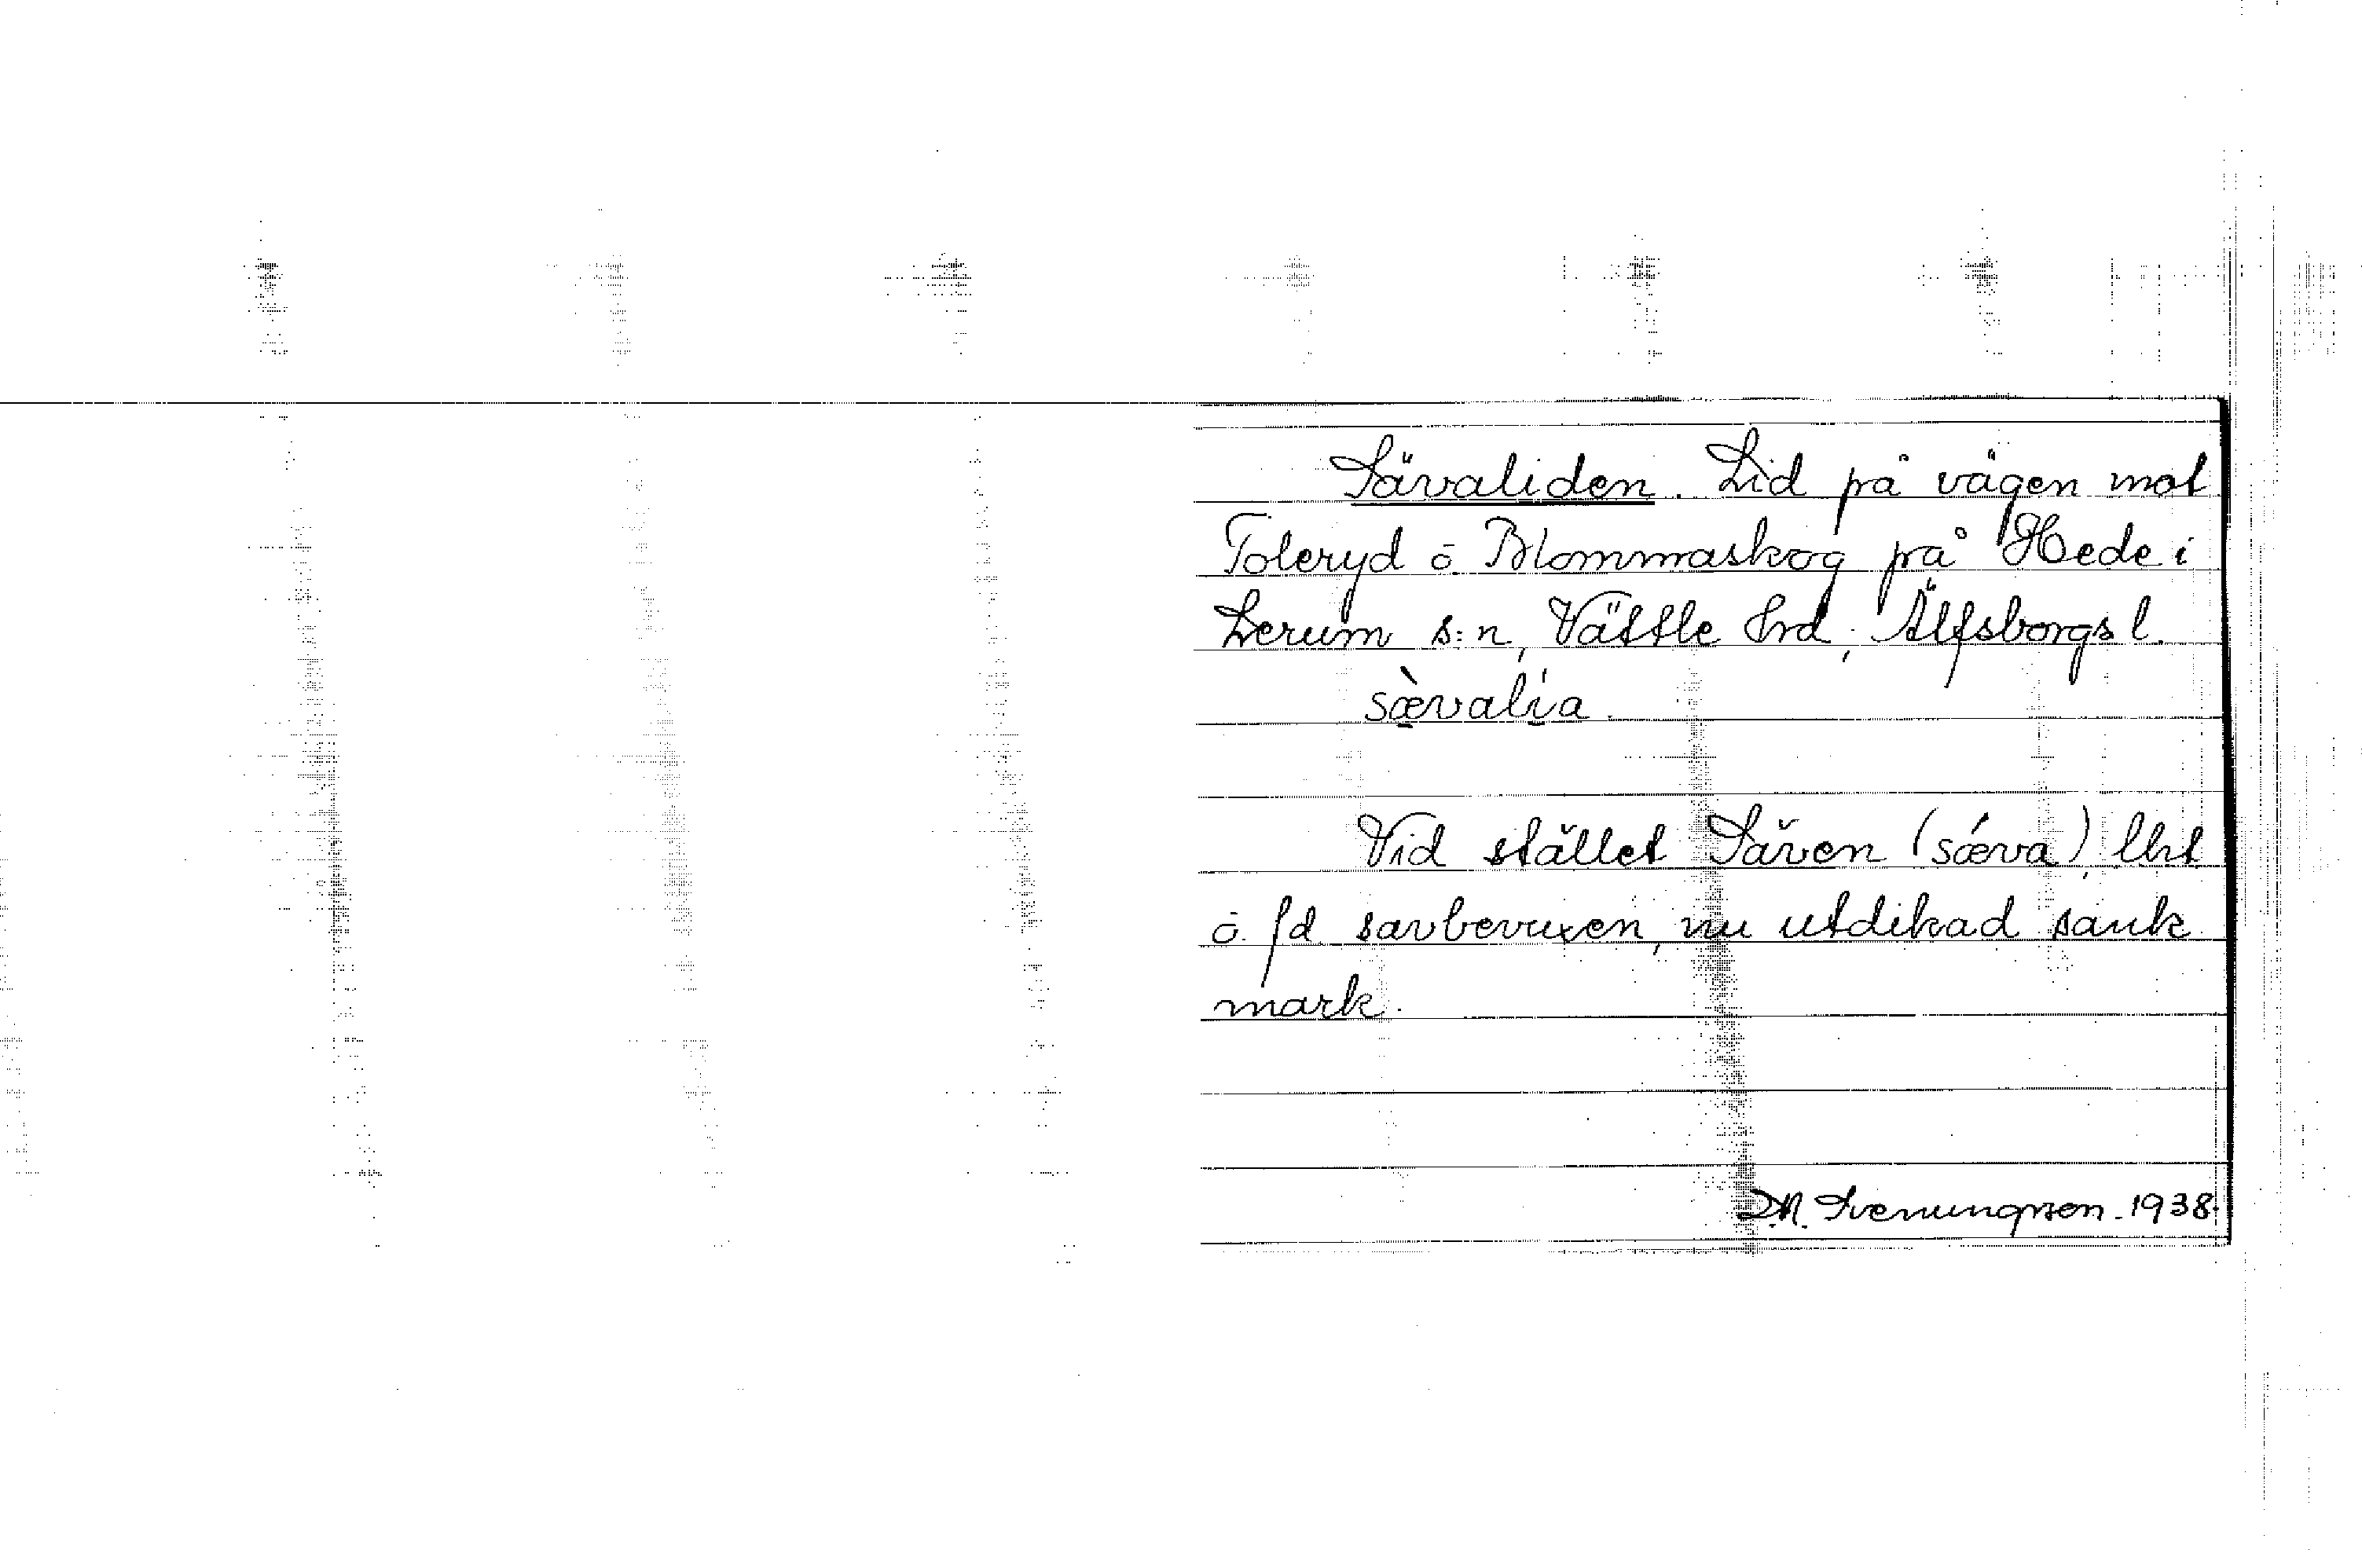 Sävaliden. Lid på vägen mot
Toleryd o. Blommaskog på Hede i
Lerum s:n, Vättle hrd, Älfsborgs l.
sæ̀valía.
Vid stället Säven (sǽva), lht
o. fd. savbevuxen, nu utdikad sank
mark.
D.N. Svenungsson. 1938.